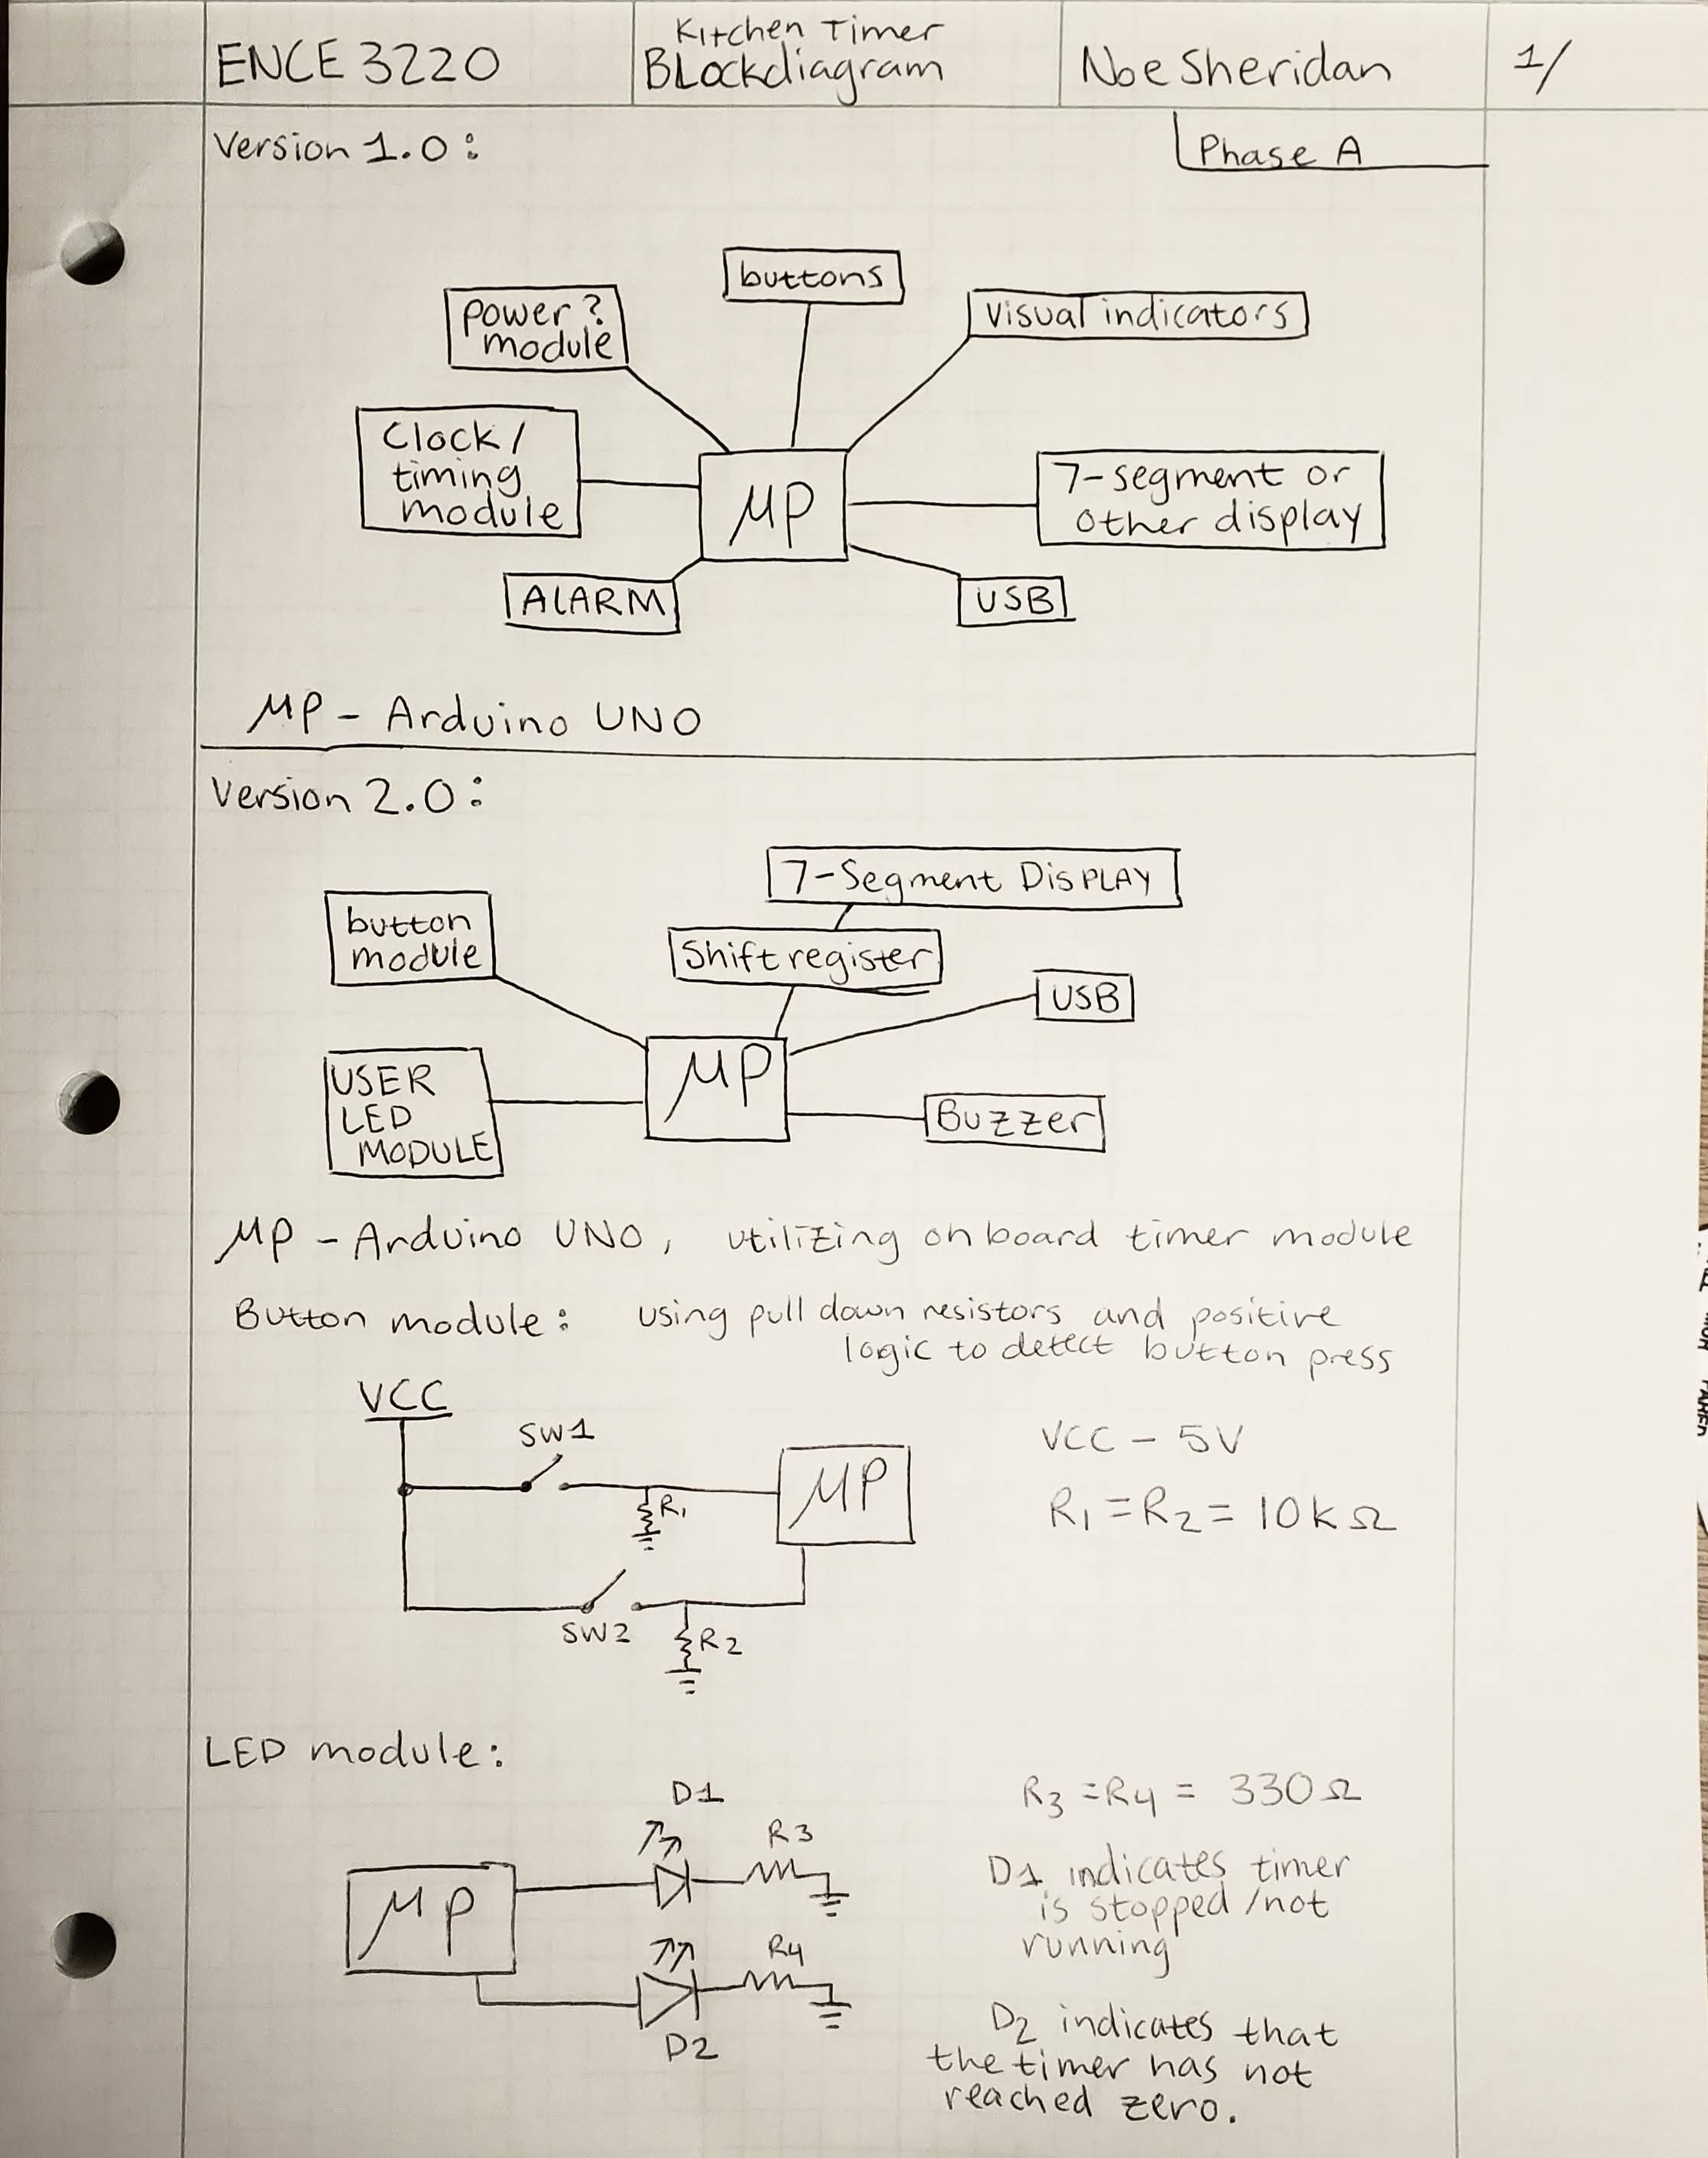 ENCE 3220
Kitchen Timer
Blockdiagram
Noe Sheridan
1/
Version 1.0:
Phase A
buttons
power?
module
Visual indicators
Clock/
timing
module
μP
7-segment or
other display
ALARM
USB
μP - Arduino UNO
Version 2.0:
7-Segment DiSPLAY
button
module
Shift register
USB
USER
LED
MODULE
μP
Buzzer
μP - Arduino UNO, utilizing on board timer module
Button module: using pull down resistors and positive
logic to detect button press
VCC
SW1
μP
R1
VCC - 5V
R1 = R2 = 10kΩ
SW2
R2
LED module:
D1
R3
μP
R4
D2
R3 = R4 = 330Ω
D1 indicates timer
is stopped /not
running
D2 indicates that
the timer has not
reached zero.